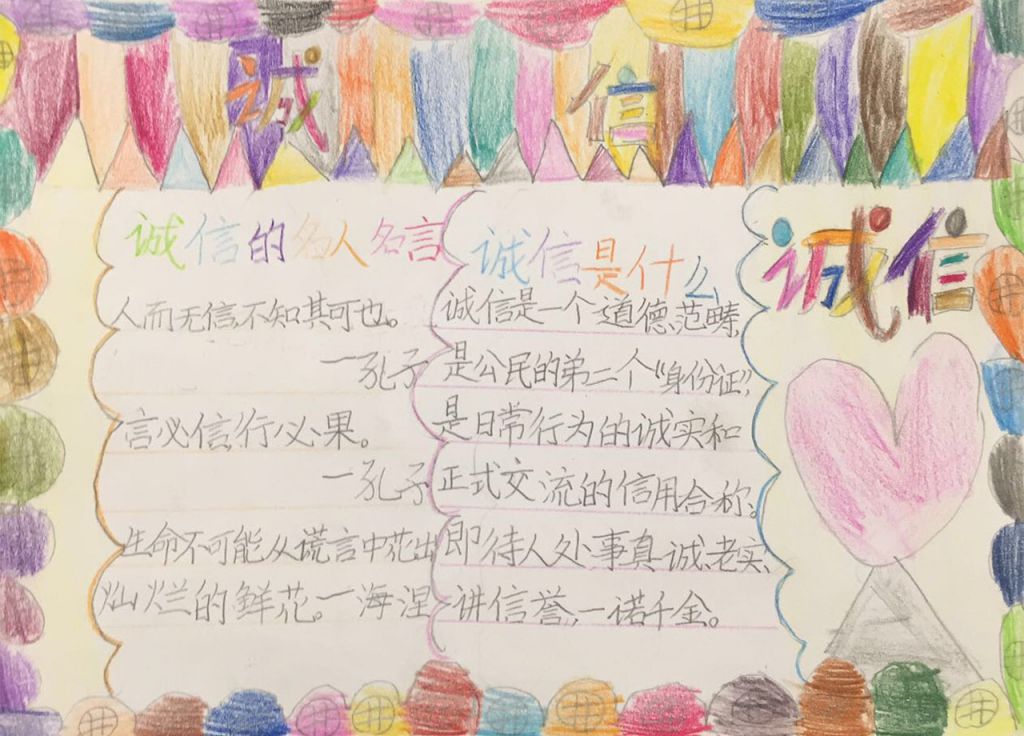 诚信
诚信的名人名言
人而无信,不知其可也。
一孔子
言必信,行必果。
一孔子
生命不可能从谎言中花出
灿烂的鲜花。一海涅
诚信是什么
诚信是一个道德范畴,
是公民的第二个“身份证”,
是日常行为的诚实和
正式交流的信用合称。
即待人处事真诚、老实、
讲信誉,一诺千金。
诚信